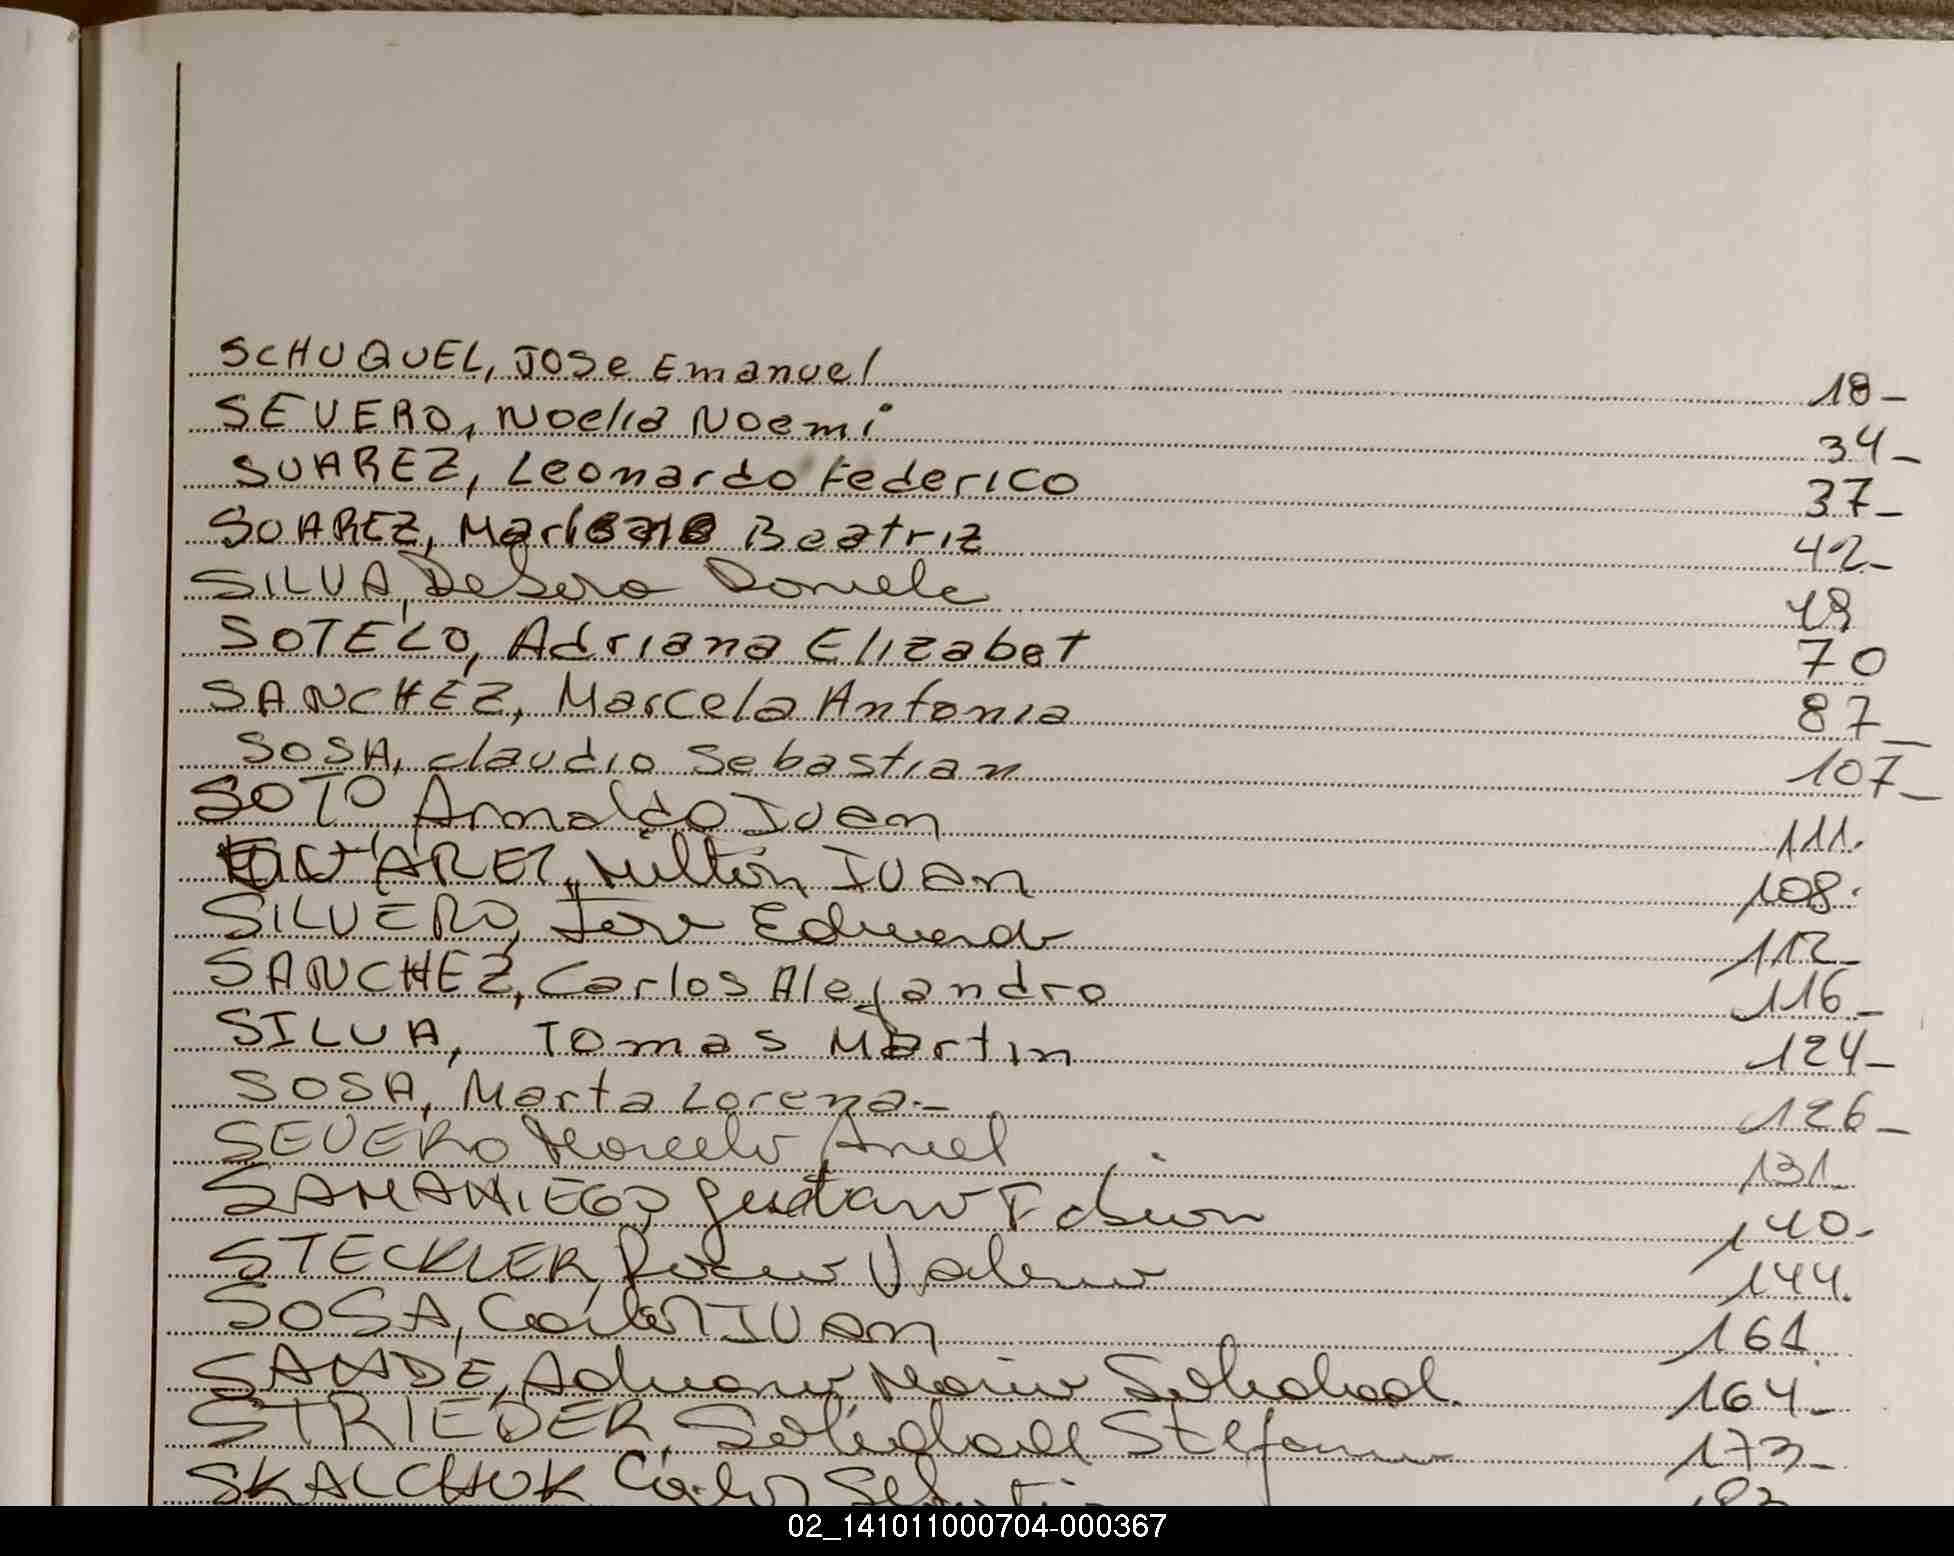 SCHUQUEL, JOSe Emanuel 18-
SEVERO, Noelia Noemi 34-
SUAREZ, Leonardo Federico 37-
SUAREZ, Beatriz 42-
SILVA, Debora Daniela 49
SOTELO, Adriana Elizabet 70
SANCHEZ, Marcela Antonia 87-
SOSA, claudio Sebastian 107-
SOTO Arnaldo Iván 111.
Milton Iván 108.
SILVERO, Jose Eduardo 112-
SANCHEZ, Carlos Alejandro 116-
SILVA, Tomas Martin 124-
SOSA, Marta Lorena.- 126-
SEVERO Marcelo Ariel 131-
SAMANIEGO, Gustavo Fabian 140-
STECKLER, Rocio Valeria 144.
SOSA, Carlos IVan 161.
SANDE, Adriana Maria Soledad. 164-
STRIEDER, Soledad Stefania 173-
SKALCHUK Carlos
02_141011000704-000367